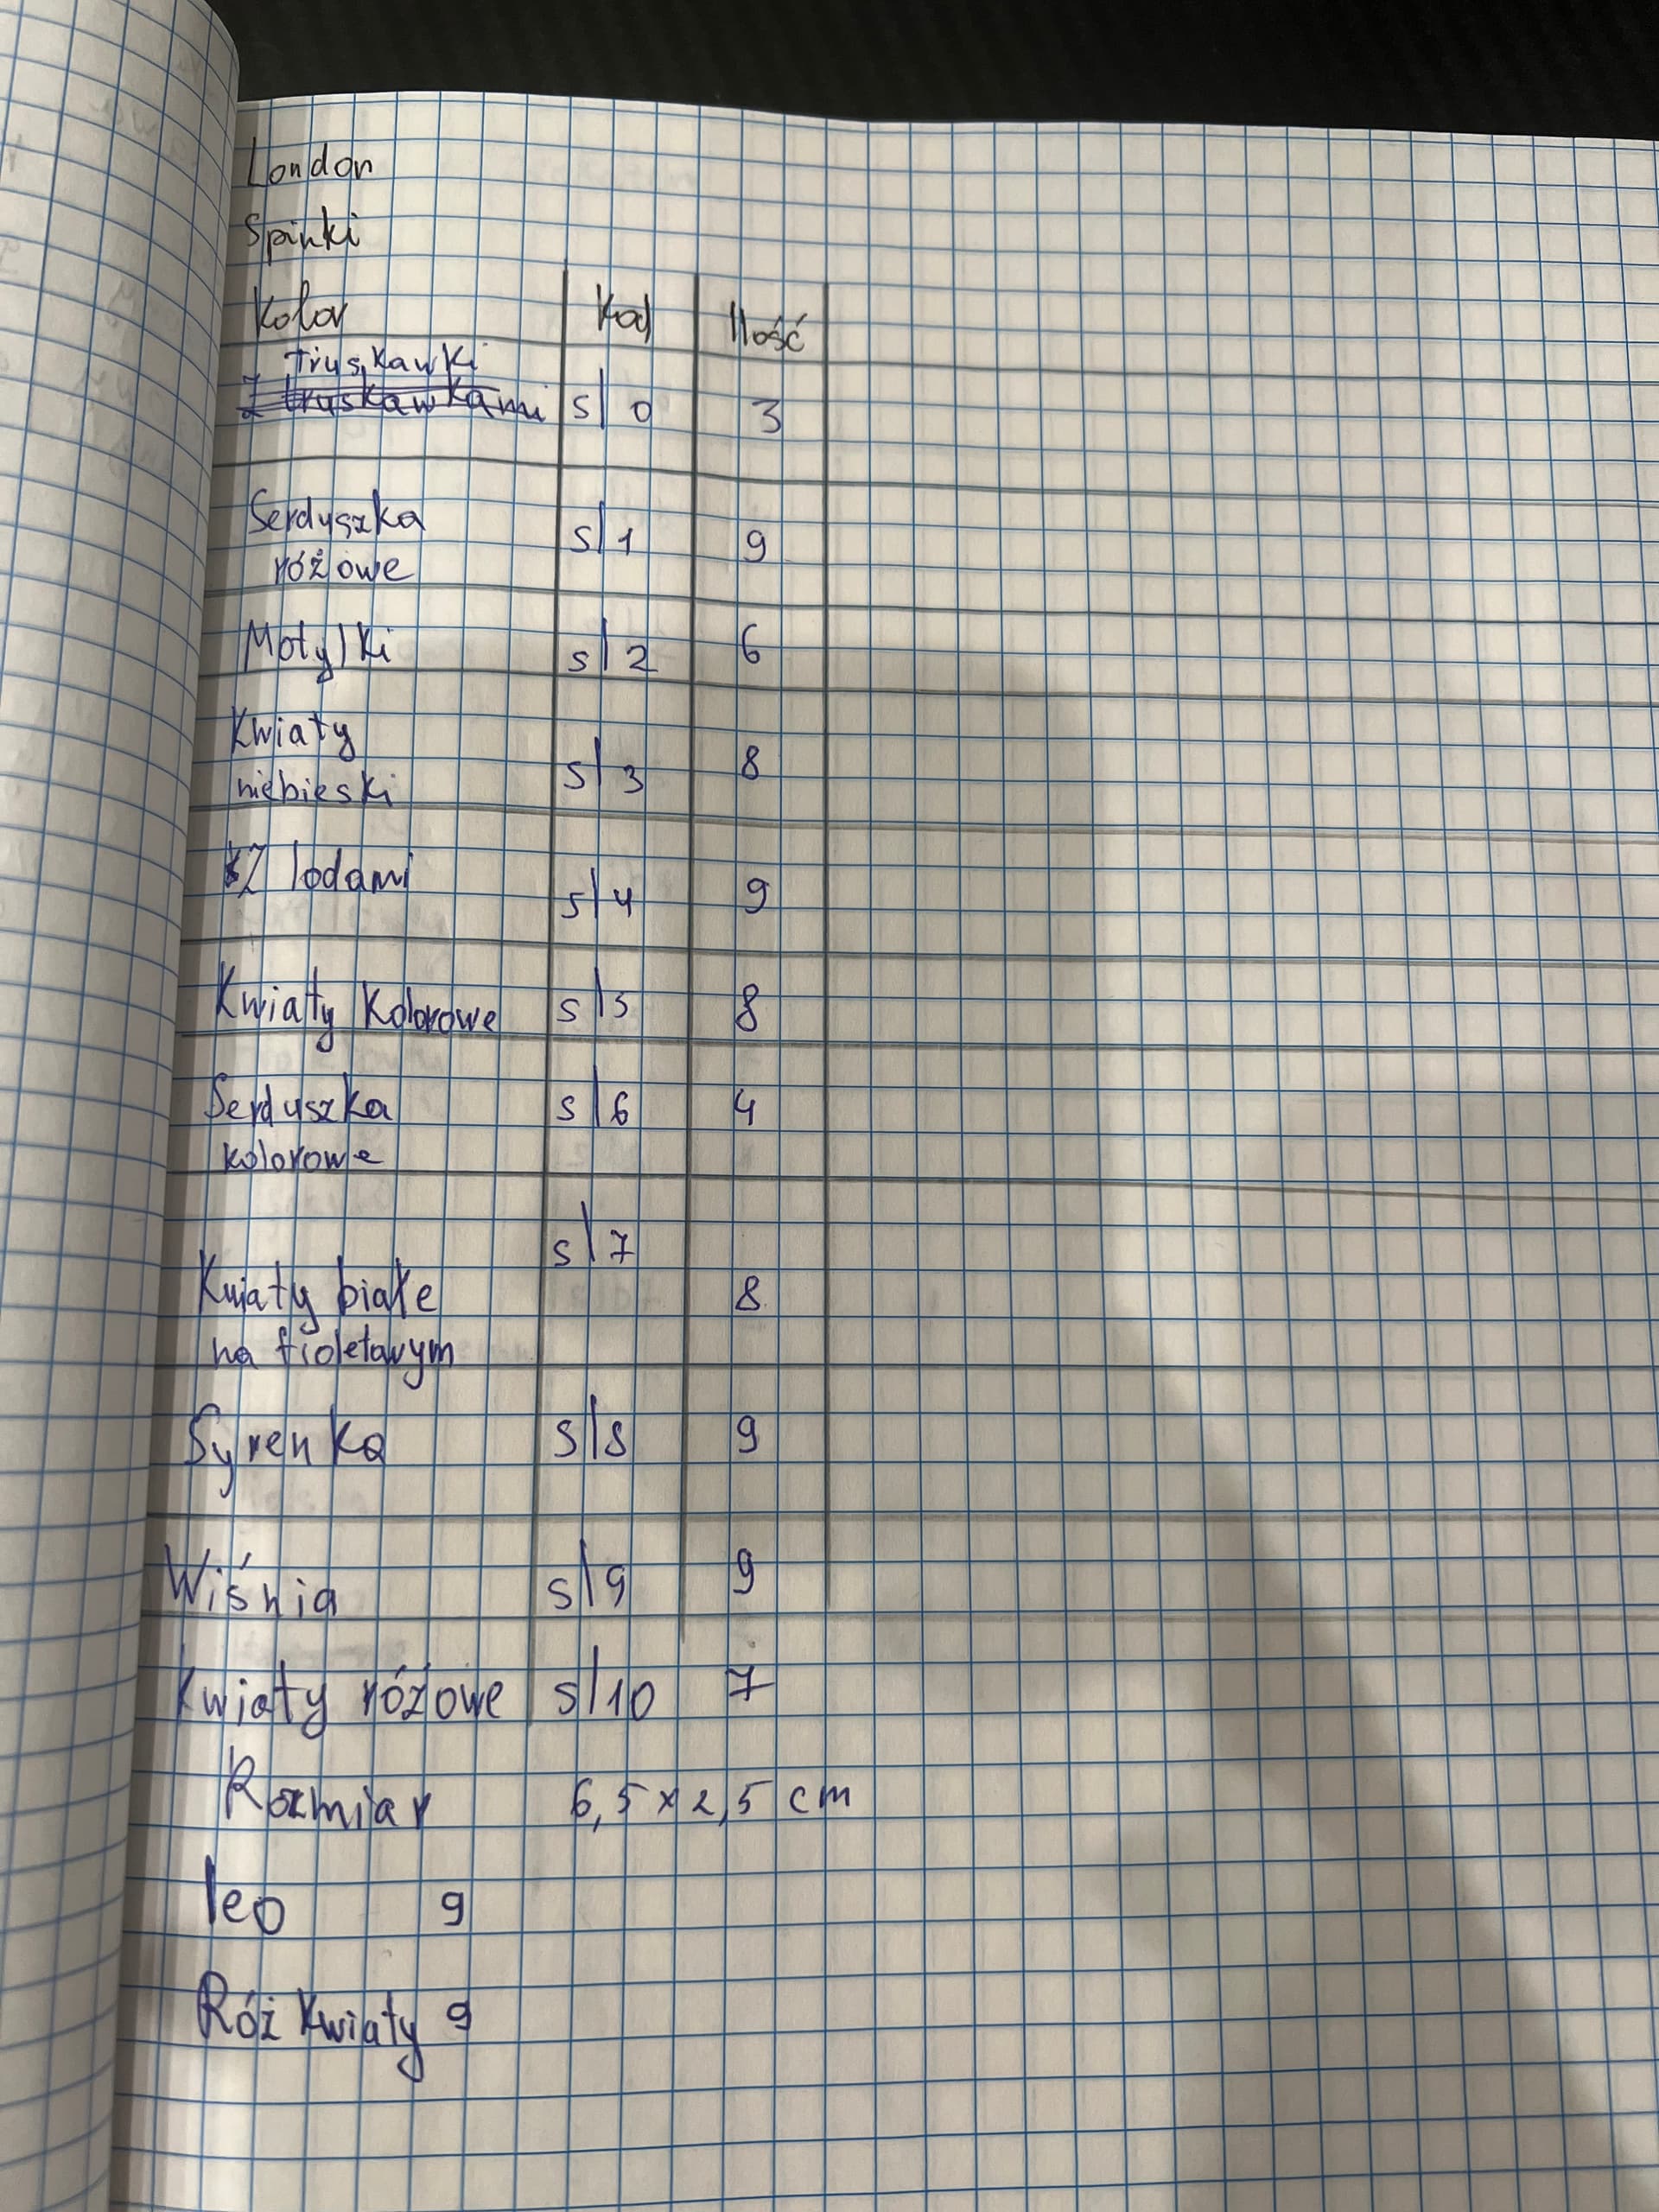 London
Spinki
Kolor Kod Ilość
truskawki
z truskawkami s/0 3
Serduszka s/1 9
różowe
Motylki s/2 6
Kwiaty
niebieski s/3 8
Z lodami s/4 9
Kwiaty kolorowe s/5 8
Serduszka s/6 4
kolorowe
s/7
Kwiaty białe 8
na fioletowym
Syrenka s/8 9
Wiśnia s/9 9
Kwiaty różowe s/10 7
Rozmiar 6,5 x 2,5 cm
leo 9
Róż kwiaty 9